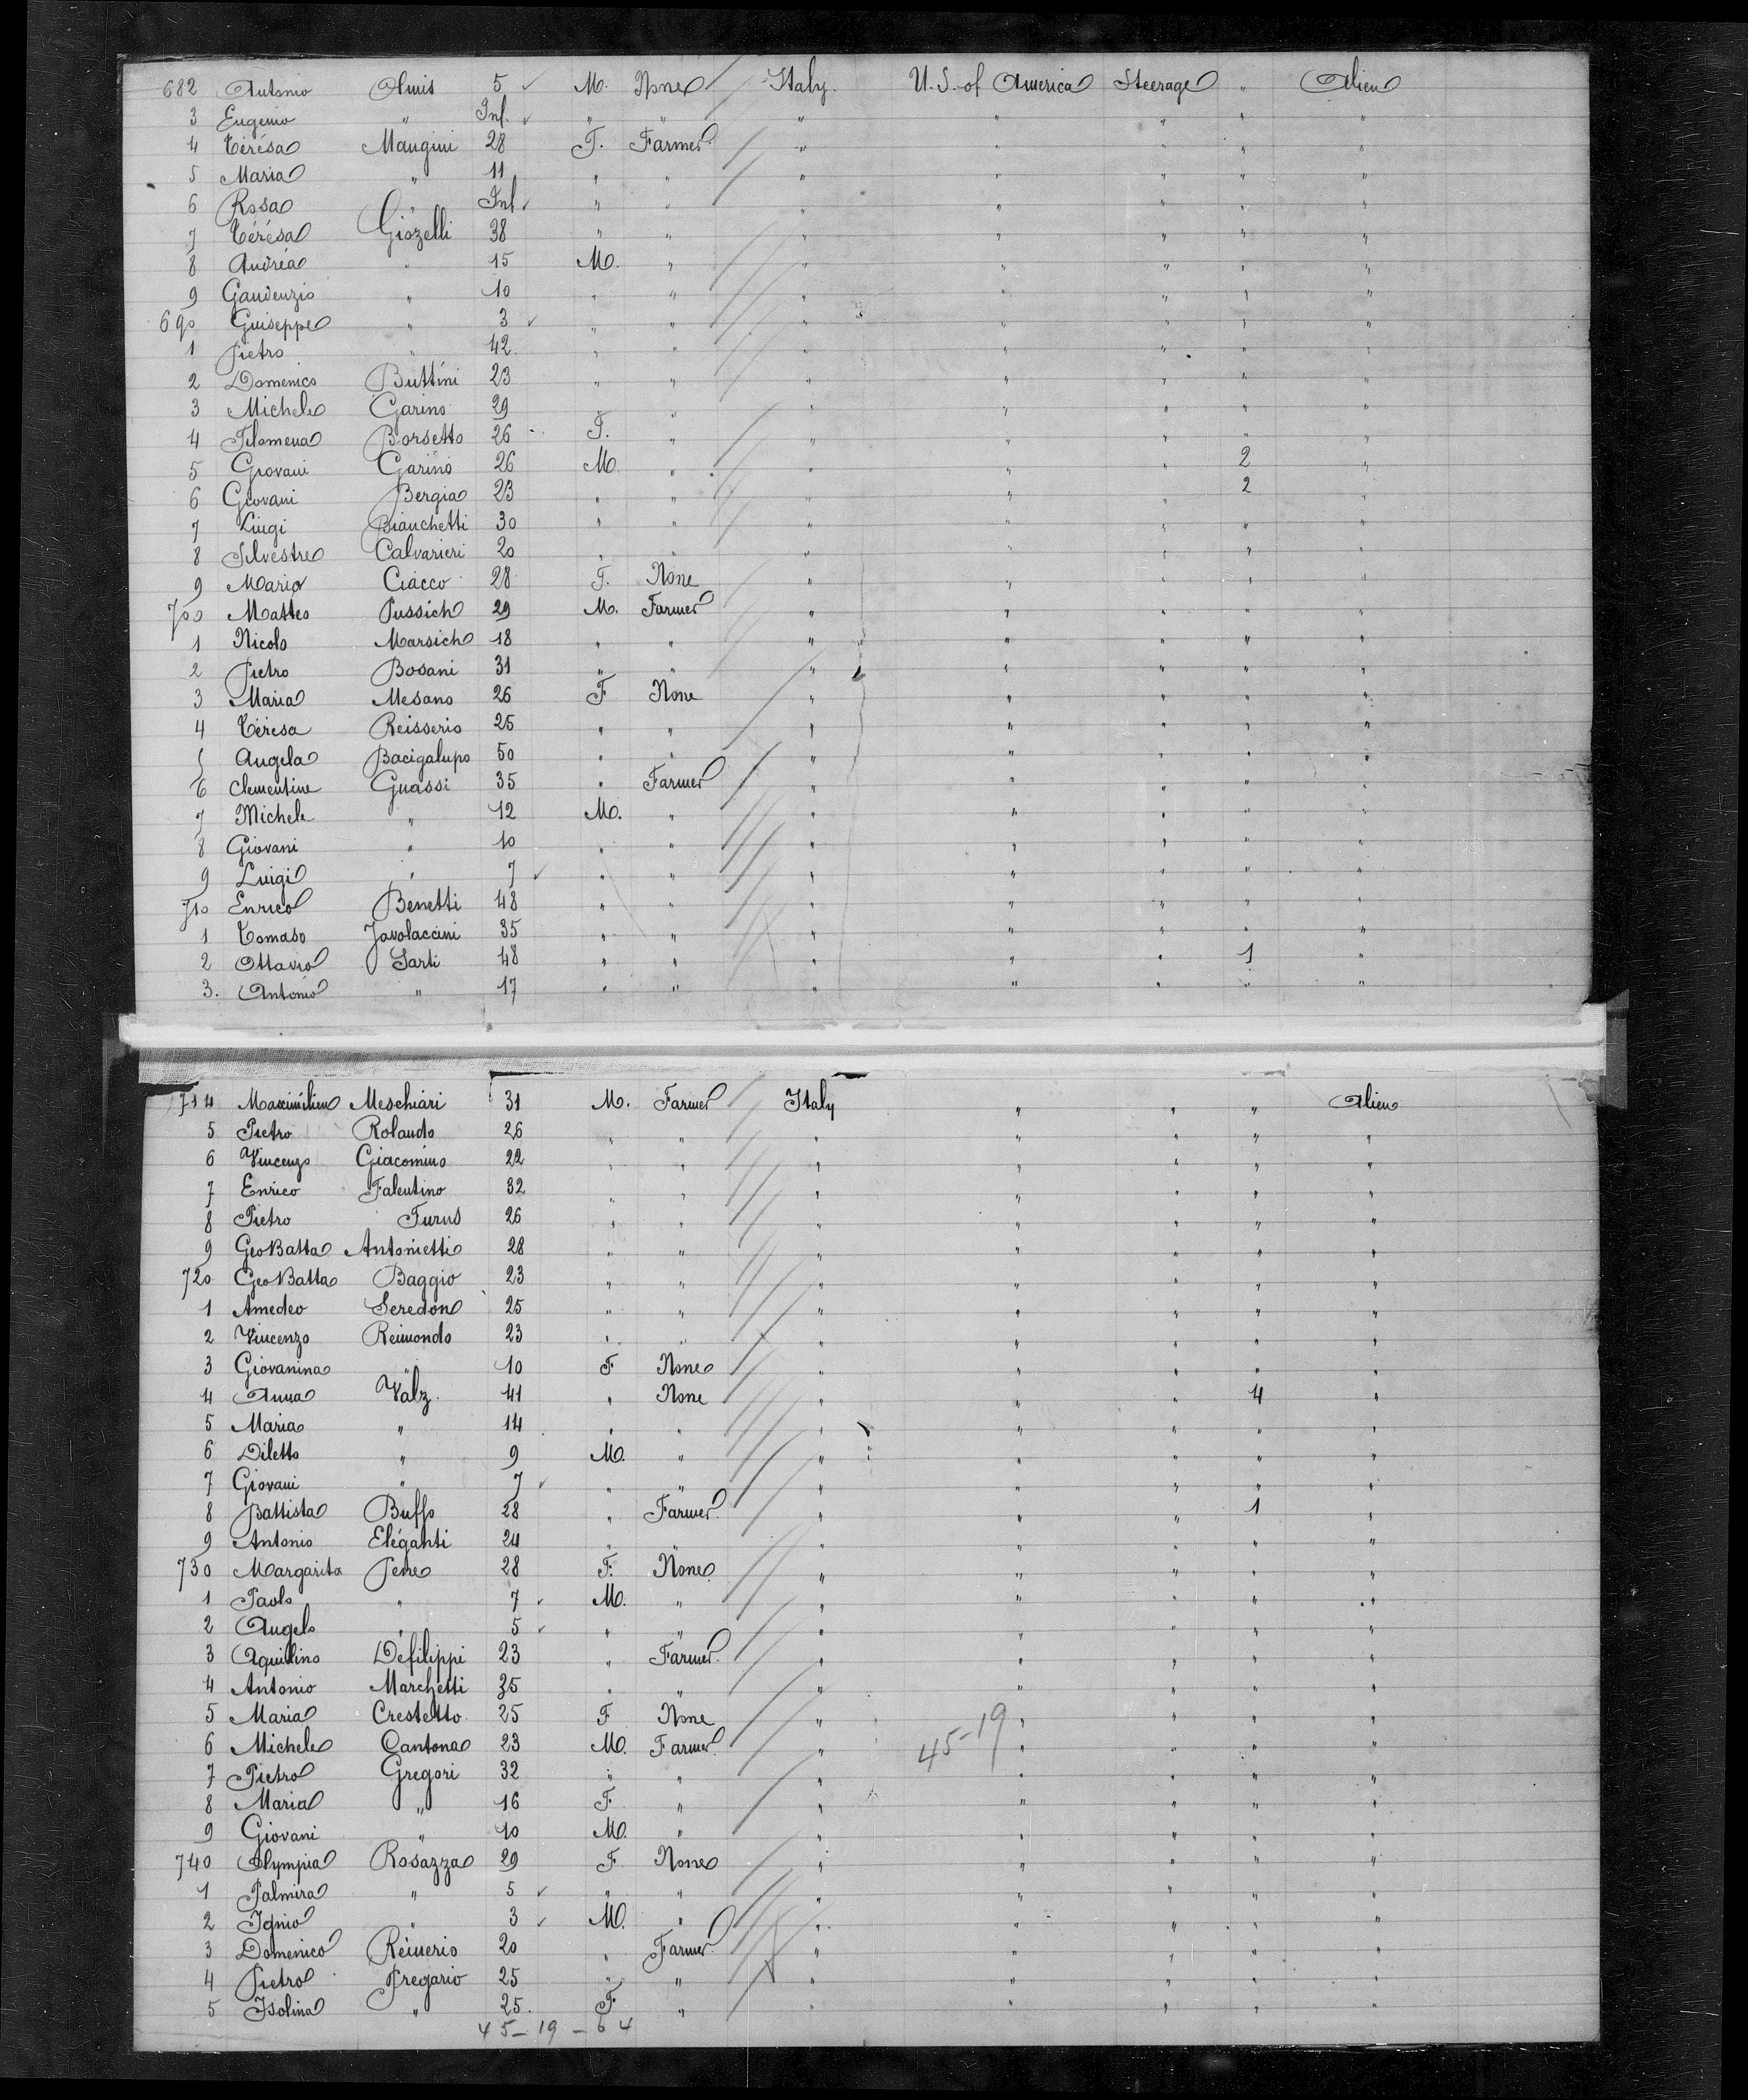 682 Antonio Olmis 5 ✓ M. None Italy. U.S. of America Steerage " Alien
3 Eugenio " Inf. ✓ " " " " " " "
4 Térésa Mangini 28 F. Farmer " " " " "
5 Maria " 11 " " " " " " "
6 Rosa " Inf ✓ " " " " " " "
7 Térésa Giozelli 38 " " " " " " "
8 Andréa " 15 M. " " " " " "
9 Gaudenzio " 10 " " " " " " "
690 Guiseppe " 3 ✓ " " " " " " "
1 Pietro " 42. " " " " " " "
2 Domenico Buttini 23 " " " " " " "
3 Michele Garino 29 " " " " " " "
4 Filomena Borsetto 26 F. " " " " " "
5 Giovani Garino 26 M " " " " 2 "
6 Giovani Bergia 23 " " " " " 2 "
7 Luigi Bianchetti 30 " " " " " " "
8 Silvestre Calvarieri 20 " " " " " " "
9 Maria Ciacco 28 F. None " " " " "
700 Matteo Pussich 29 M. Farmer " " " " "
1 Nicolo Marsich 18 " " " " " " "
2 Pietro Bosani 31 " " " " " " "
3 Maria Mesano 26 F None " " " " "
4 Térésa Reisserio 25 " " " " " " "
5 Angela Bacigalupo 50 " " " " " " "
6 Clementine Guassi 35 " Farmer " " " " "
7 Michele " 12 M. " " " " " "
8 Giovani " 10 " " " " " " "
9 Luigi " 7 ✓ " " " " " " "
710 Enrico Benetti 48 " " " " " " "
1 Tomaso Javolaccini 35 " " " " " " "
2 Ottavio Sarti 48 " " " " " 1 "
3. Antonio " 17 " " " " " " "
714 Maximilien Meschiari 31 M. Farmer Italy " " " Alien
5 Pietro Rolando 26 " " " " " " "
6 Vincenzo Giacomino 22 " " " " " " "
7 Enrico Falentino 32 " " " " " " "
8 Pietro Turno 26 " " " " " " "
9 GeoBatta Antonietti 28 " " " " " " "
720 GeoBatta Baggio 23 " " " " " " "
1 Amedeo Seredon 25 " " " " " " "
2 Vincenzo Reimondo 23 " " " " " " "
3 Giovanina " 10 F None " " " " "
4 Anna Valz. 41 " None " " " 4 "
5 Maria " 14 " " " " " " "
6 Diletto " 9 M. " " " " " "
7 Giovani " 7 ✓ " " " " " " "
8 Battista Buffo 28 " Farmer " " " 1 "
9 Antonio Eléganti 24 " " " " " " "
730 Margarita 28 F. None " " " " "
1 Paolo " 7 ✓ M. " " " " " "
2 Angelo " 5 ✓ " " " " " " "
3 Aquilino Defilippi 23 " Farmer " " " " "
4 Antonio Marchetti 35 " " " " " " "
5 Maria Crestetto 25 F None " " " " "
6 Michele Cantona 23 M. Farmer " 45-19 " " " "
7 Pietro Gregori 32 " " " " " " "
8 Maria " 16 F. " " " " " "
9 Giovani " 10 M. " " " " " "
740 Olympia Rosazza 29 F None " " " " "
1 Palmira " 5 ✓ " " " " " " "
2 Ignio " 3 ✓ M. " " " " " "
3 Domenico Reinerio 20 " Farmer " " " " "
4 Pietro Fregario 25 " " " " " " "
5 Isolina " 25. F. " " " " " "
45-19-64